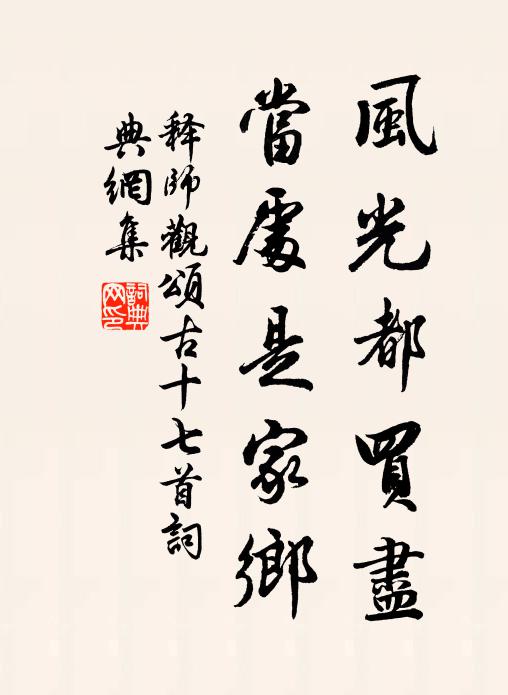 風光都買盡
當處是家鄉
釋師觀頌古十七首詞
典網集
詞典
网印